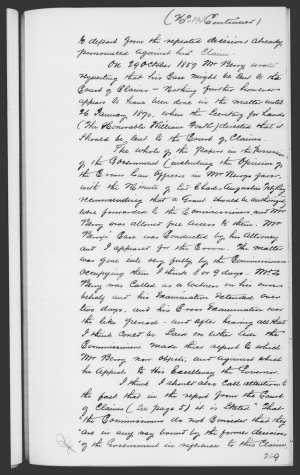 (No Continued)
to depart from the repeated decisions already
pronounced against his Claim.
On 29 October 1889 Mr Berry wrote
requesting that his Case might be sent to the
Court of Claims - Nothing further however
appears to have been done in the matter until
26 January 1890, when the Secretary for Lands
(The Honorable William ) directed that it
should be sent to the Court of Claims.
The whole of the Papers in the Possession
of the Government (including the Opinion of
the Crown Law Officers in Mr Berrys favor
with the Minute of Sir Charles Augustus
recommending that a Grant should be authorized
were forwarded to the Commissioners and Mr
Berry was allowed free access to them. Mr
Berrys Case was Conducted by his Attorney
and I appeared for the Crown. The matter
was gone into very fully by the Commissioners
occupying them I think 8 or 9 days. Mr
Berry was Called as a Witness on his own
behalf and his Examination extended over
two days, and his Cross Examination over
the like period and after hearing all that
I think could be said on either side the
Commissioners made their report to which
Mr Berry now objects, and against which
he Appeals to His Excellency the Governor.
I think I should also Call attention to
the fact that in the report from the Court
of Claims (See page 5) it is Stated "That
"the Commissioners do not Consider that they
"are in any way bound by the former decisions
"of the Government in reference to this Claim,